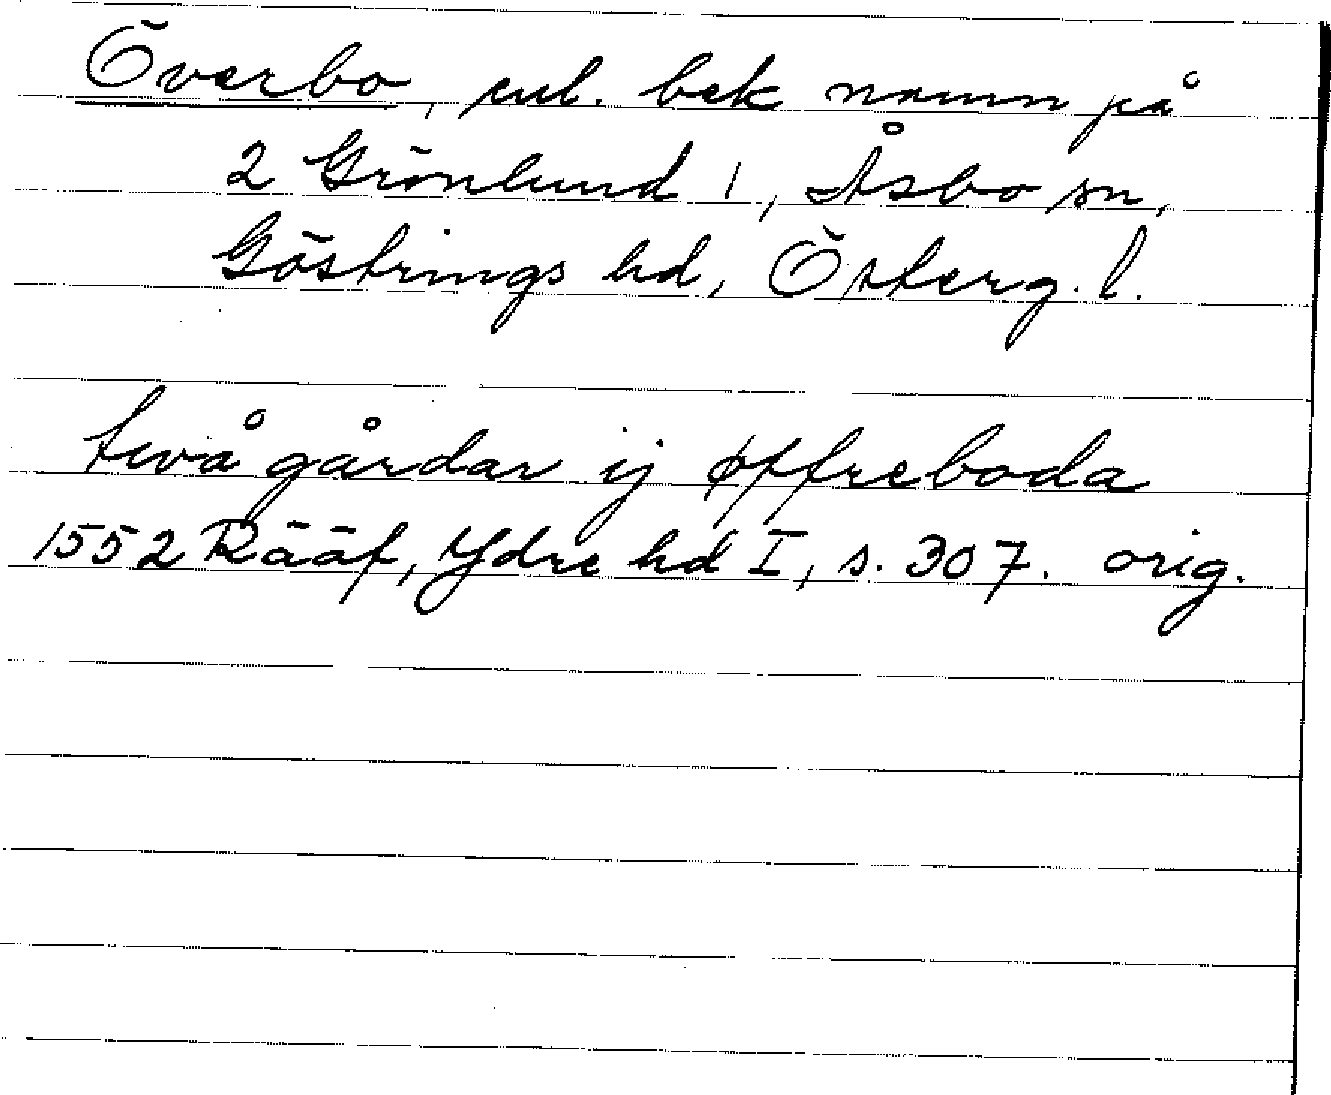 Överbo, enl. bek namn på
2 Grönlund 1, Åsbo sn,
Göstrings hd, Österg. l.
twå gårdar ij øffreboda
1552 Rääf, Ydre hd I, s. 307. orig.